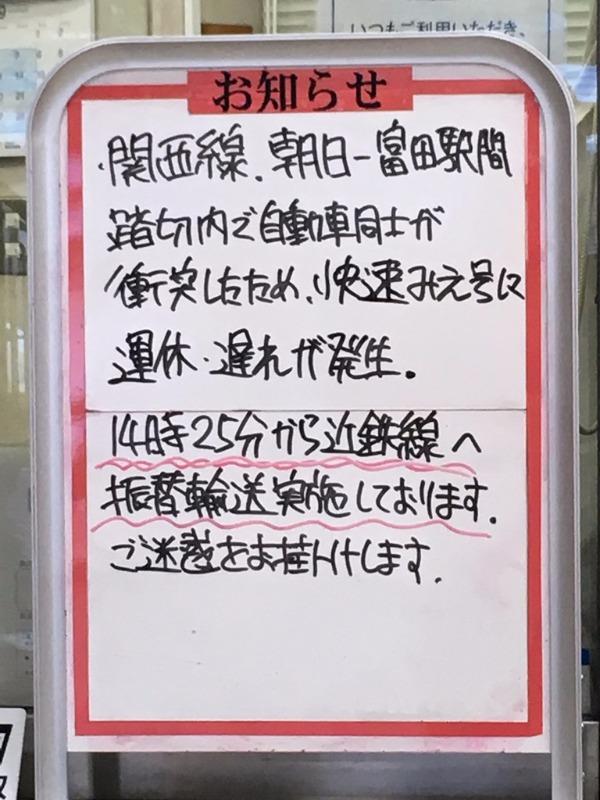 いつもご利用いただき、
お知らせ
・関西線、朝日ー富田駅間
踏切内で自動車同士が
衝突したため、快速みえ号に
運休・遅れが発生。
14時25分から近鉄線へ
振替輸送実施しております。
ご迷惑をお掛けします。